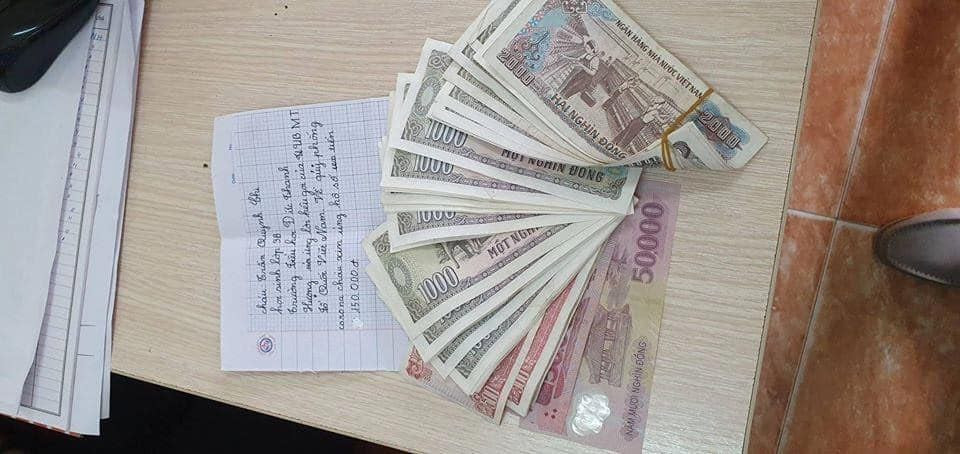 cháu Trần Quỳnh Chi
học sinh lớp 3B
trường tiểu học Đức Thanh
Hưởng ứng lời kêu gọi của UB MT
Tổ Quốc Việt Nam. Về quỹ phòng
corona cháu xin ủng hộ số tiền
150.000 đ
NGÂN HÀNG NHÀ NƯỚC VIỆT NAM
2000
HAI NGHÌN ĐỒNG
2000
1000
MỘT NGHÌN ĐỒNG
1000
1000
MỘT NGHÌN
1000
50.000
NĂM MƯƠI NGHÌN ĐỒNG